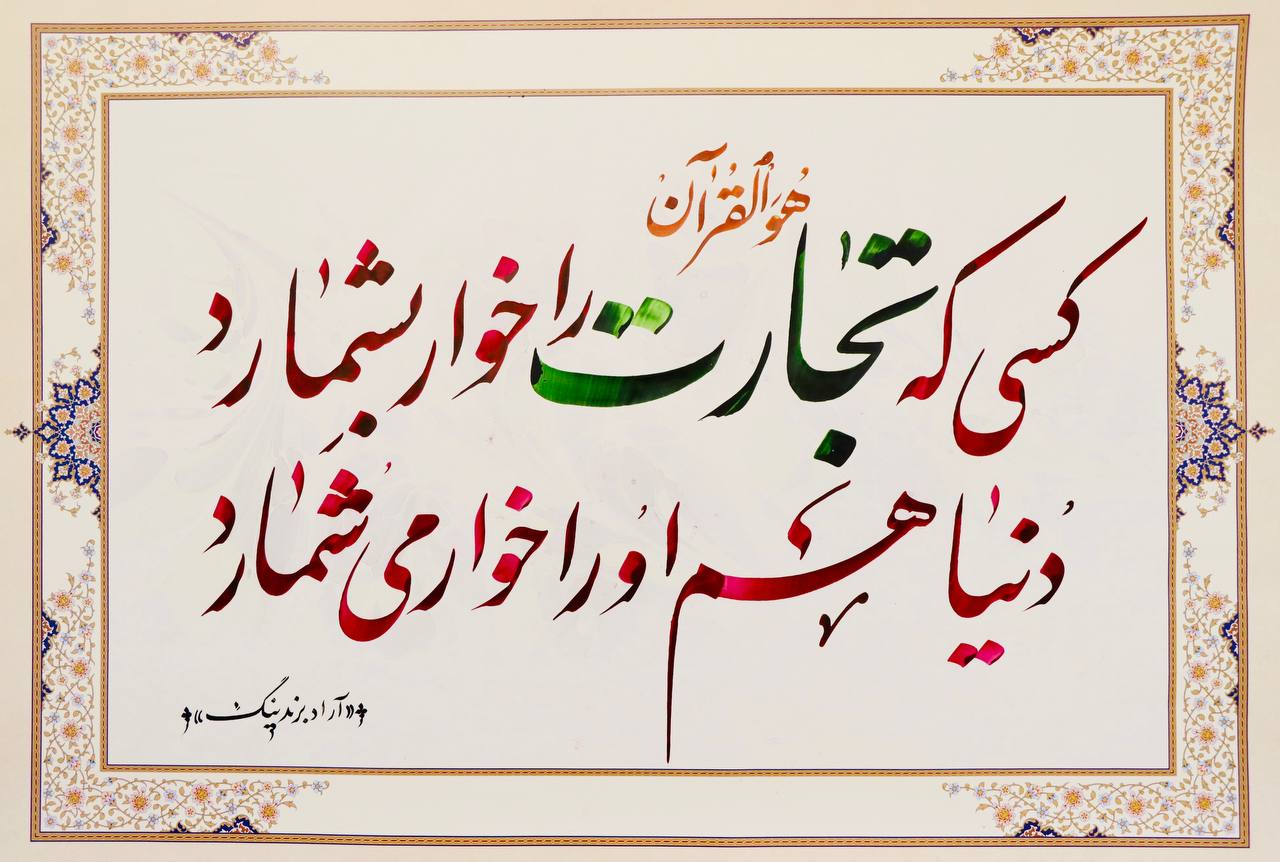 هُوَ الْقُرآن
کسی که تجارت را خوار بشمارد
دُنیا هم او را خوار می شُمارد
«آراد برندینگ»